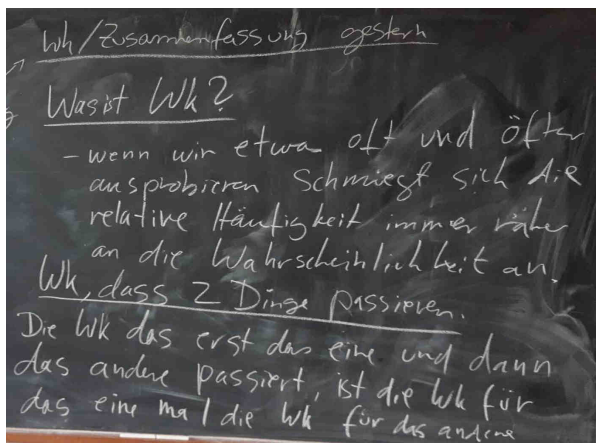 Wh/Zusammenfassung gestern
Was ist Wk?
- wenn wir etwas oft und öfter
ausprobieren schmiegt sich die
relative Häufigkeit immer näher
an die Wahrscheinlichkeit an.
Wk, dass 2 Dinge passieren.
Die Wk das erst das eine und dann
das andere passiert, ist die Wk für
das eine mal die Wk für das andere